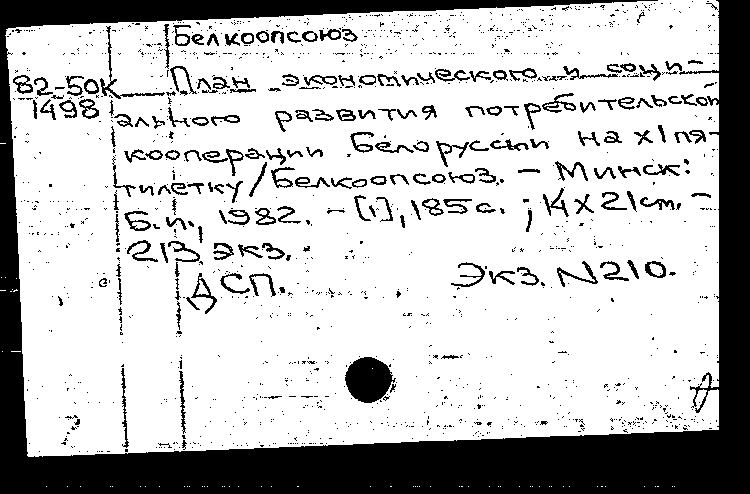 Белкоопсоюз
82-50К План экономического и соци-
1498 ального развития потребительской
кооперации Белоруссии на XI пя-
тилетку/Белкоопсоюз. - Минск:
Б.и., 1982. - [1], 185 с. ; 14 х 21 см. -
213 экз.
ДСП. Экз. N210.